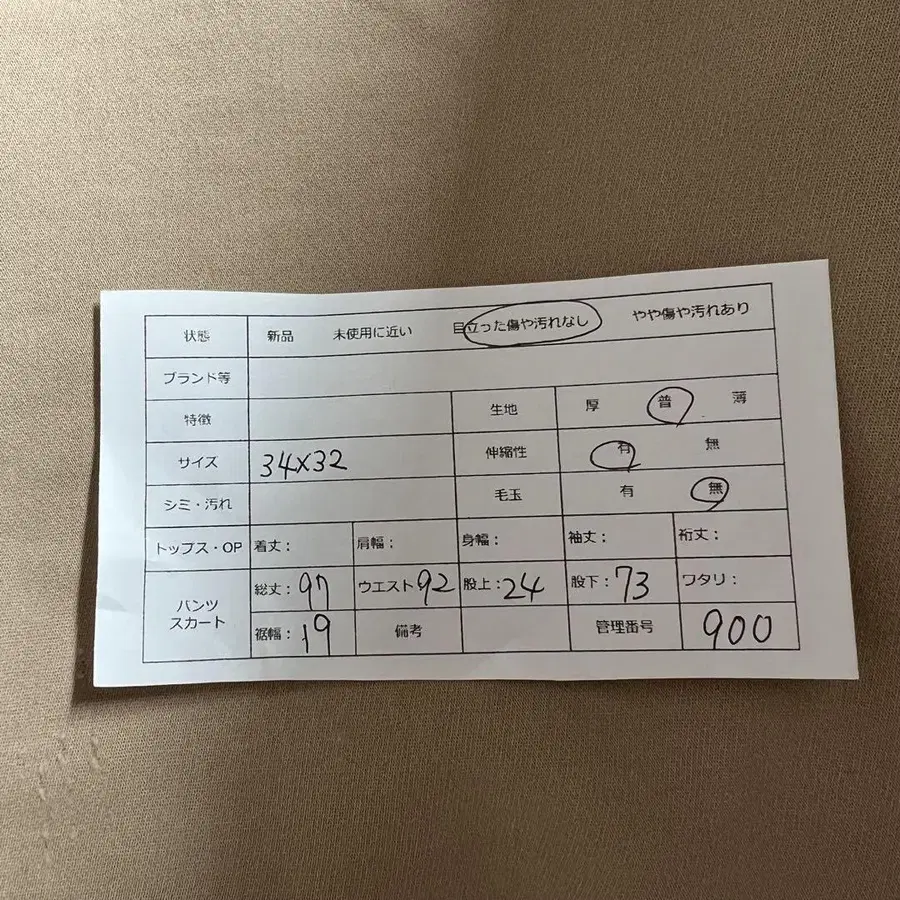 状態 新品 未使用に近い 目立った傷や汚れなし やや傷や汚れあり
ブランド等
特徴 生地 厚 普 薄
サイズ 34×32 伸縮性 有 無
シミ・汚れ 毛玉 有 無
トップス・OP 着丈: 肩幅: 身幅: 袖丈: 裄丈:
パンツ スカート 総丈: 97 ウエスト 92 股上: 24 股下: 73 ワタリ:
裾幅: 19 備考 管理番号 900